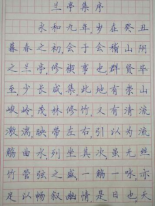 兰亭集序
永和九年，岁在癸丑，
暮春之初，会于会稽山阴
之兰亭，修禊事也。群贤毕
至，少长咸集。此地有崇山
峻岭，茂林修竹；又有清流
激湍，映带左右，引以为流
觞曲水，列坐其次。虽无丝
竹管弦之盛，一觞一咏，亦
足以畅叙幽情。是日也，天